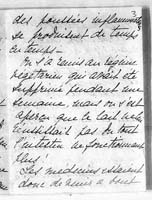 3
des poussées inflammat
se produisent de temps
en temps —
On s'a remis au régime
végétarien qui avait été
supprimé pendant une
semaine, mais on s'est
aperçu que le lait ne
pas du tout
l'intestin ne fonctionnant
plus!
Les médecins essaient
donc de venir à bout